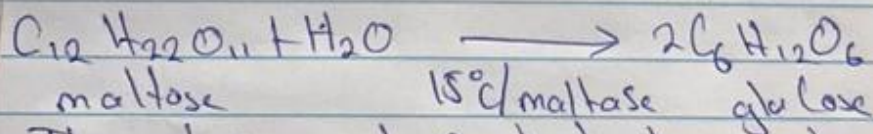 C₁₂H₂₂O₁₁ + H₂O ⟶ 2C₆H₁₂O₆
maltose 15°C/maltase glucose